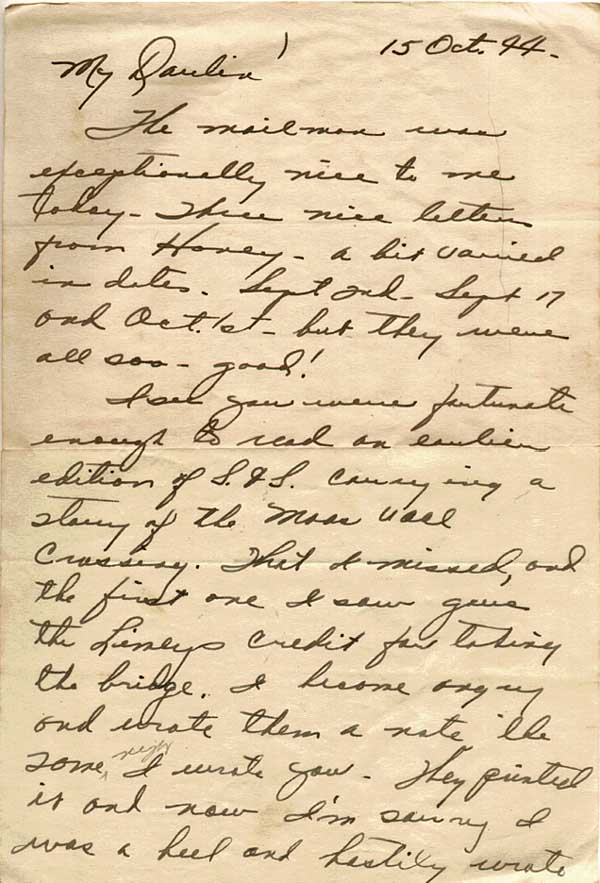 15 Oct. 44.
My Darlin'
The mailman was
exceptionally nice to me
today - Three nice letters
from Honey - a bit varied
in dates. Sept 2nd - Sept 17
and Oct. 1st - but they were
all soo - good!
I see you were fortunate
enough to read an earlier
edition of S. & S. carrying a
story of the Maas Waal
Crossing. That I missed, and
the first one I saw gave
the Limeys credit for taking
the bridge. I became angry
and wrote them a note the
same I wrote you - They printed
it and now I'm sorry I
was a heel and hastily wrote